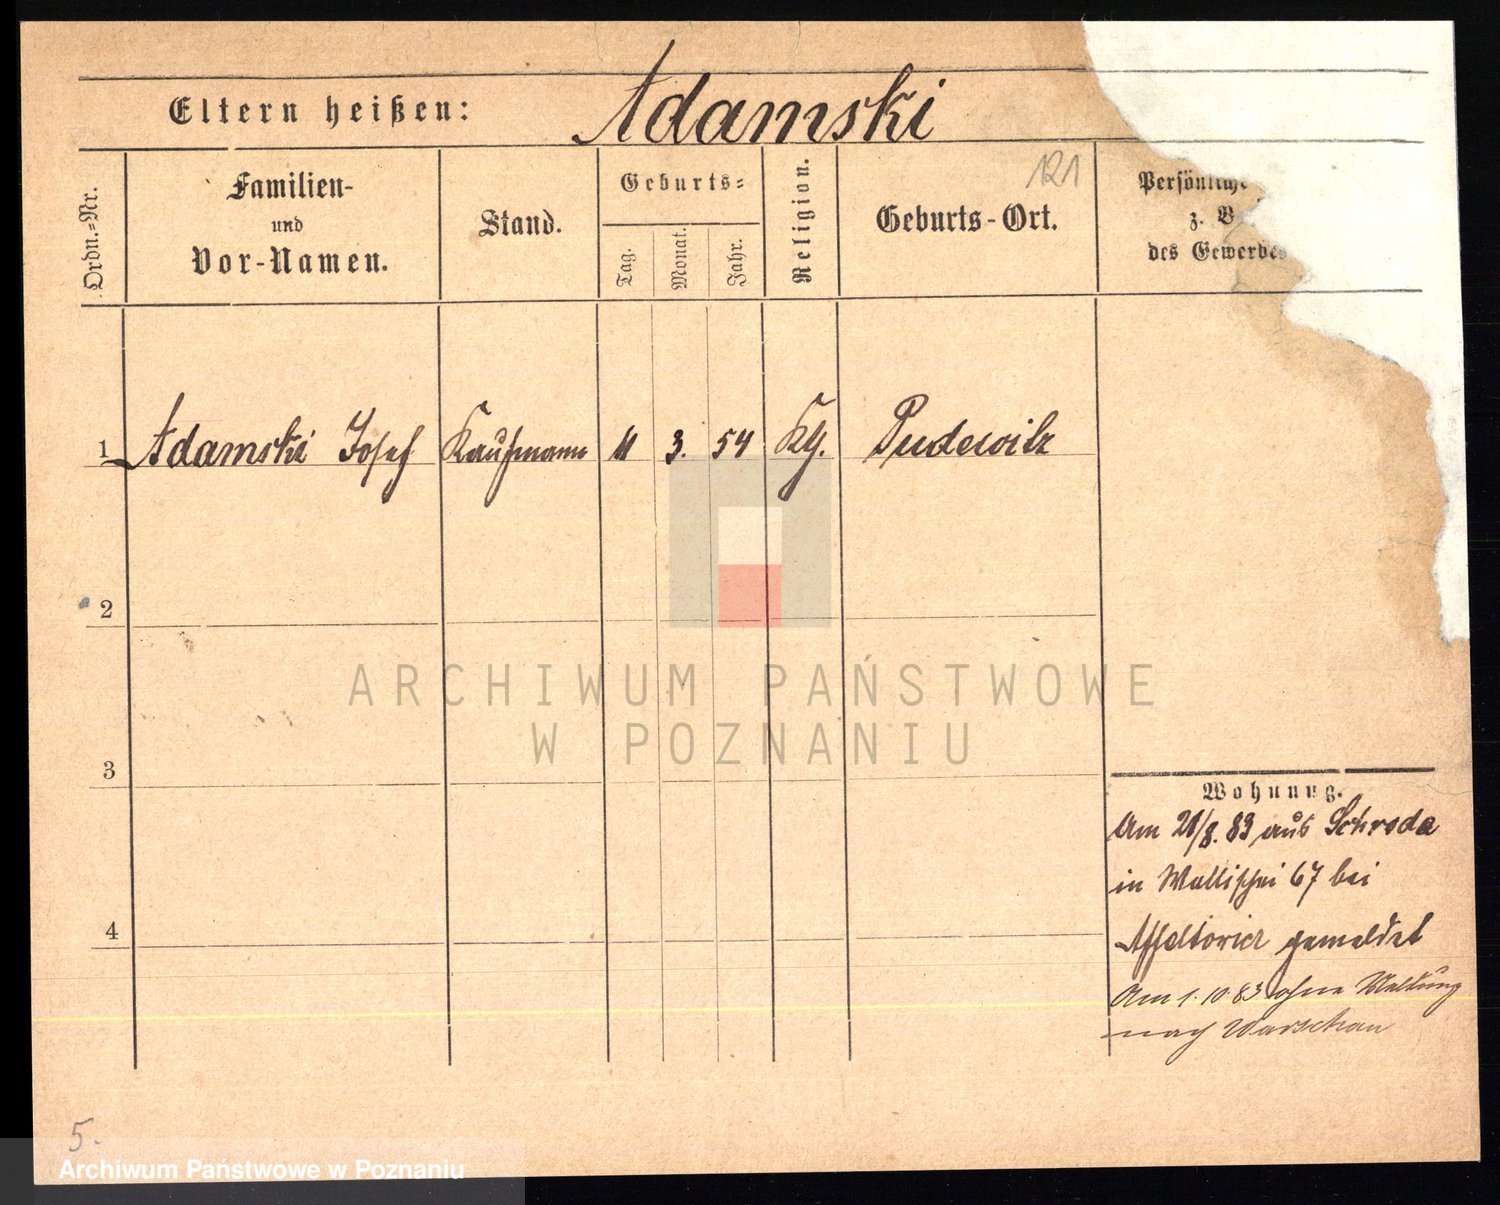 Eltern heißen: Adamski
121
Ordn.-Nr.
Familien-
und
Vor-Namen.
Stand.
Geburts-
Tag.
Monat.
Jahr.
Religion.
Geburts-Ort.
Persönliche
z. B
des Gewerbes
1 Adamski Josef Kaufmann 11 3. 54 Kth. Pudewitz
2
3
4
Wohnung.
Am 21/8. 83 aus Schroda
in Wallischei 67 bei
gemeldet
Am 1. 10 83 ohne Meldung
nach Warschau
5.
ARCHIWUM PAŃSTWOWE
W POZNANIU
Archiwum Państwowe w Poznaniu